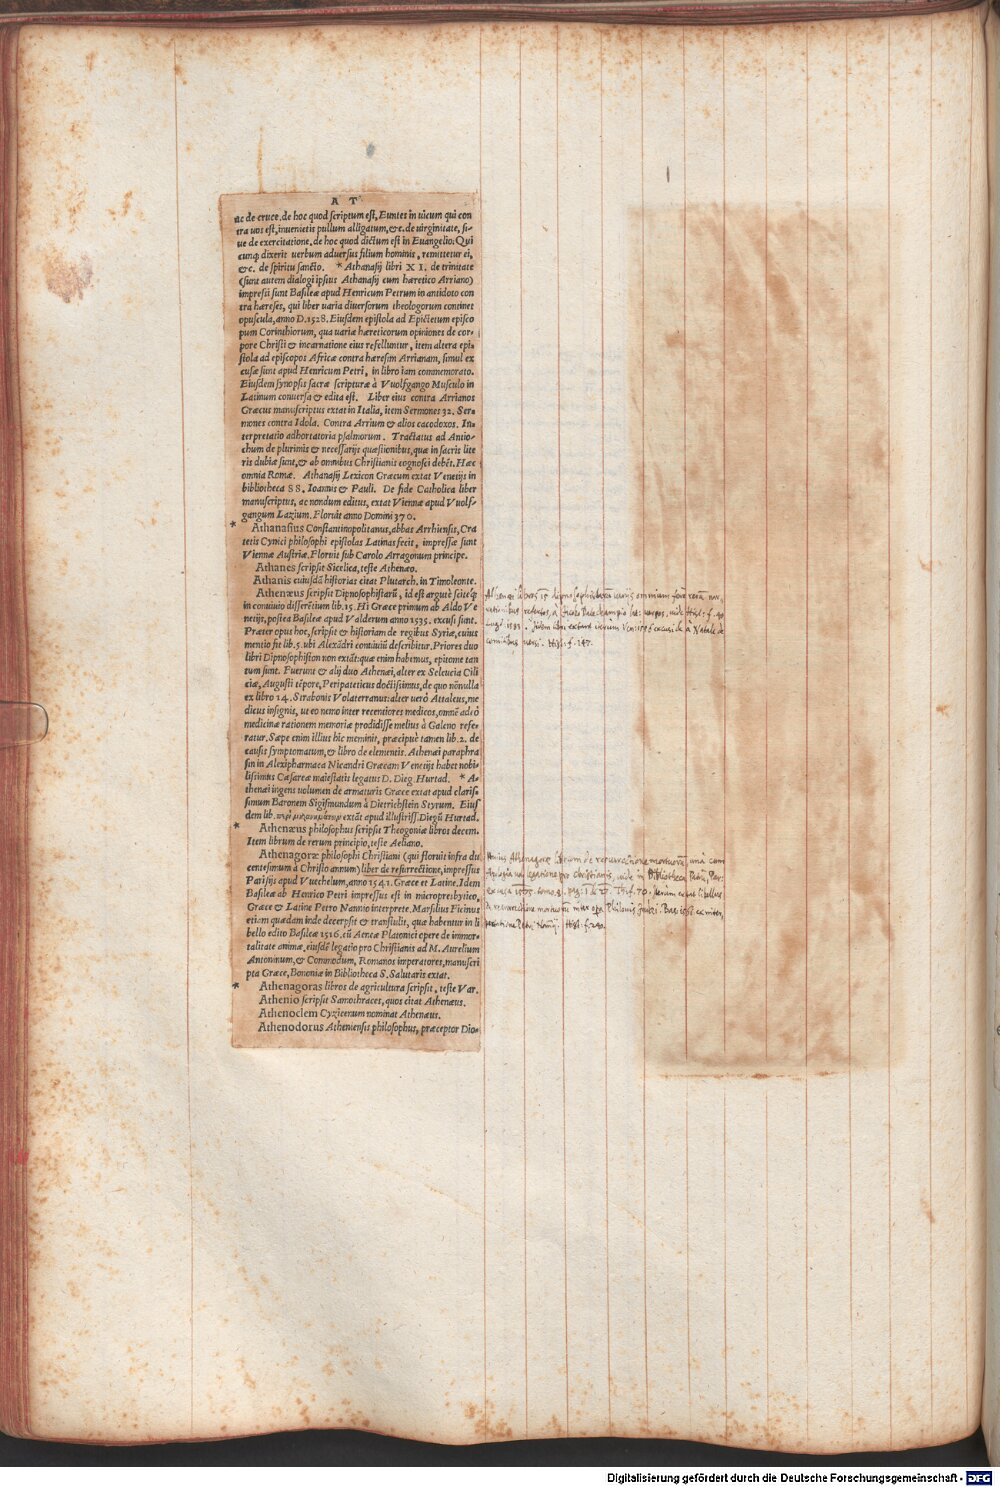 A T
ac de cruce. de hoc quod scriptum est, Euntes in uicum qui con
tra uos est, inuenietis pullum alligatum, &c. de uirginitate, si-
ue de exercitatione. de hoc quod dictum est in Euangelio: Qui
cunq; dixerit uerbum aduersus filium hominis, remittetur ei,
&c. de spiritu sancto. * Athanasij libri XI. de trinitate
(sunt autem dialogi ipsius Athanasij cum hæretico Arriano)
impressi sunt Basileæ apud Henricum Petrum in antidoto con
tra hæreses, qui liber uaria diuersorum theologorum continet
opuscula, anno D. 1528. Eiusdem epistola ad Epictetum episco
pum Corinthiorum, qua uariæ hæreticorum opiniones de cor-
pore Christi & incarnatione eius refelluntur, item altera epi-
stola ad episcopos Africæ contra hæresin Arrianam, simul ex
cusæ sunt apud Henricum Petri, in libro iam commemorato.
Eiusdem synopsis sacræ scripturæ à Vuolfgango Musculo in
Latinum conuersa & edita est. Liber eius contra Arrianos
Græcus manuscriptus extat in Italia, item Sermones 32. Ser-
mones contra Idola. Contra Arrium & alios cacodoxos. In-
terpretatio adhortatoria psalmorum. Tractatus ad Antio-
chum de plurimis & necessarijs quæstionibus, quæ in sacris lite
ris dubiæ sunt, & ab omnibus Christianis cognosci debēt. Hæc
omnia Romæ. Athanasij Lexicon Græcum extat Venetijs in
bibliotheca SS. Ioannis & Pauli. De fide Catholica liber
manuscriptus, ac nondum editus, extat Viennæ apud Vuolf-
gangum Lazium. Floruit anno Domini 370.
* Athanasius Constantinopolitanus, abbas Arrhiensis, Cra
tetis Cynici philosophi epistolas Latinas fecit, impressæ sunt
Viennæ Austriæ. Floruit sub Carolo Arragonum principe.
Athanes scripsit Sicelica, teste Athenæo.
Athanis cuiusdā historias citat Plutarch. in Timoleonte.
Athenæus scripsit Dipnosophistarū, id est argutè sciteq;
in conuiuio disserētium lib. 15. Hi Græce primum ab Aldo Ve
netijs, postea Basileæ apud Valderum anno 1535. excusi sunt.
Præter opus hoc, scripsit & historiam de regibus Syriæ, cuius
mentio fit lib. 5. ubi Alexādri conuiuiū describitur. Priores duo
libri Dipnosophiston non extāt: quæ enim habemus, epitome tan
tum sunt. Fuerunt & alij duo Athenæi, alter ex Seleucia Cili
ciæ, Augusti tēpore, Peripateticus doctissimus, de quo nōnulla
ex libro 14. Strabonis Volaterranus: alter uerò Attaleus, me
dicus insignis, ut eo nemo inter recentiores medicos, omnē adeò
medicinæ rationem memoriæ prodidisse melius à Galeno refe-
ratur. Sæpe enim illius hic meminit, præcipuè tamen lib. 2. de
causis symptomatum, & libro de elementis. Athenæi paraphra
sin in Alexipharmaca Nicandri Græcam Venetijs habet nobi-
lissimus Cæsareæ maiestatis legatus D. Dieg. Hurtad. * A-
thenæi ingens uolumen de armaturis Græce extat apud clariss-
simum Baronem Sigismundum à Dietrichstein Styrum. Eius
dem lib. extāt apud illustriss. Diegū Hurtad.
* Athenæus philosophus scripsit Theogoniæ libros decem.
Item librum de rerum principio, teste Aeliano.
Athenagoræ philosophi Christiani (qui floruit infra du
centesimum à Christo annum) liber de resurrectione, impressus
Parisijs apud Vuechelum, anno 1541. Græce et Latine. Idem
Basileæ ab Henrico Petri impressus est in micropresbytico,
Græce & Latine Petro Nannio interprete. Marsilius Ficinus
etiam quædam inde decerpsit & transtulit, quæ habentur in li
bello edito Basileæ 1516. cū Aeneæ Platonici opere de immor-
talitate animæ. eiusdē legatio pro Christianis ad M. Aurelium
Antoninum, & Commodum, Romanos imperatores, manuscri
pta Græce, Bononiæ in Bibliotheca S. Saluatoris extat.
* Athenagoras libros de agricultura scripsit, teste Var.
Athenio scripsit Samothraces, quos citat Athenæus.
Athenoclem Cyzicenum nominat Athenæus.
Athenodorus Atheniensis philosophus, præceptor Dio-
Athenæi libros 15 dipnosophistarum omnium fere rerum
refertos, à Dalechampio uide Hist: f. 90
1583.
uersi. Hist: f. 247.
Athenagoræ librum de resurrectione mortuorū, una cum
legatione pro christianis, uide in Bibliotheca Patrū, Par:
tomo 9. pag: f. 70.
De resurrectione mortuorū inter
Petri Nannij. Hist: f. 290.
Digitalisierung gefördert durch die Deutsche Forschungsgemeinschaft - DFG